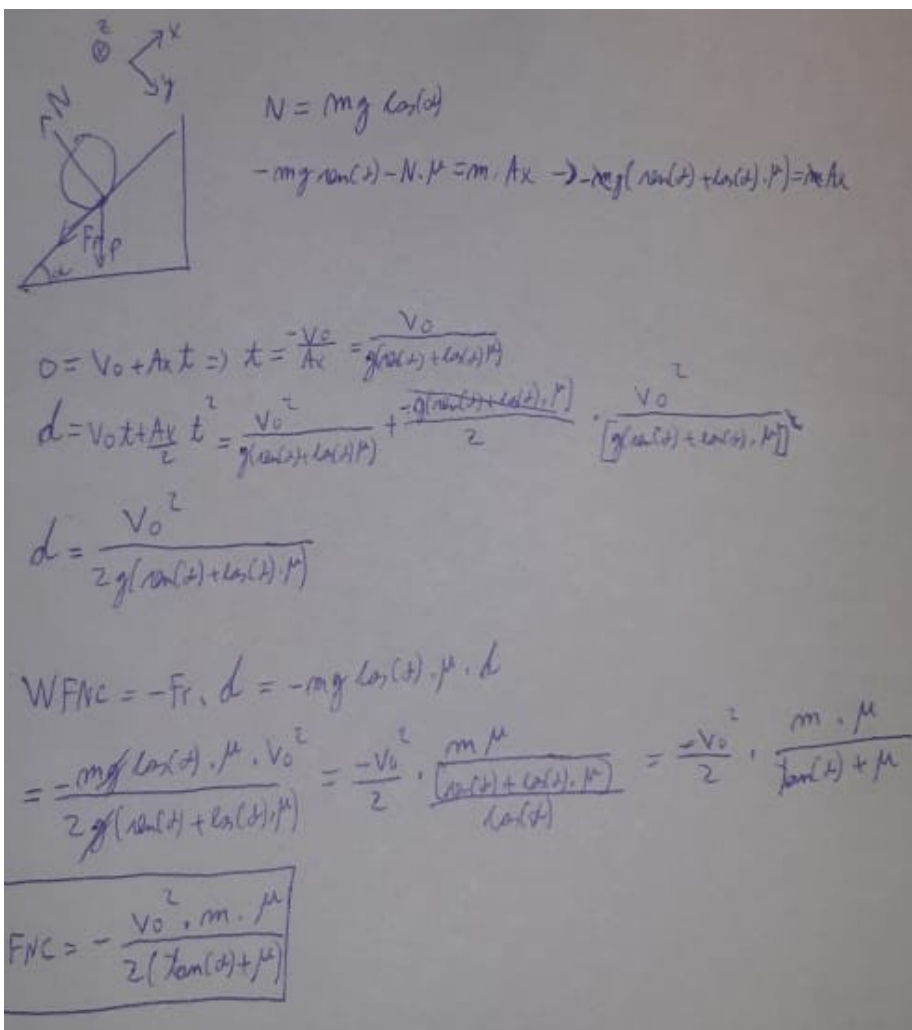 z
x
y
N
Fr P
α
N = mg cos(α)
-mg sen(α) - N.μ = m. Ax → -mg( sen(α) + cos(α).μ) = mAx
0 = V0 + Ax t => t = -V0/Ax = V0/g(sen(α) + cos(α)μ)
d = V0t + Ax/2 t² = V0²/g(sen(α) + cos(α)μ) + -g(sen(α) + cos(α).μ)/2 . V0²/[g(sen(α) + cos(α).μ)]²
d = V0²/2g(sen(α) + cos(α).μ)
WFNC = -Fr. d = -mg cos(α).μ.d
= -mg cos(α).μ.V0²/2g(sen(α) + cos(α).μ) = -V0²/2 . mμ/(sen(α) + cos(α).μ)/cos(α) = -V0²/2 . m.μ/tan(α) + μ
FNC = - V0².m.μ/2(tan(α) + μ)